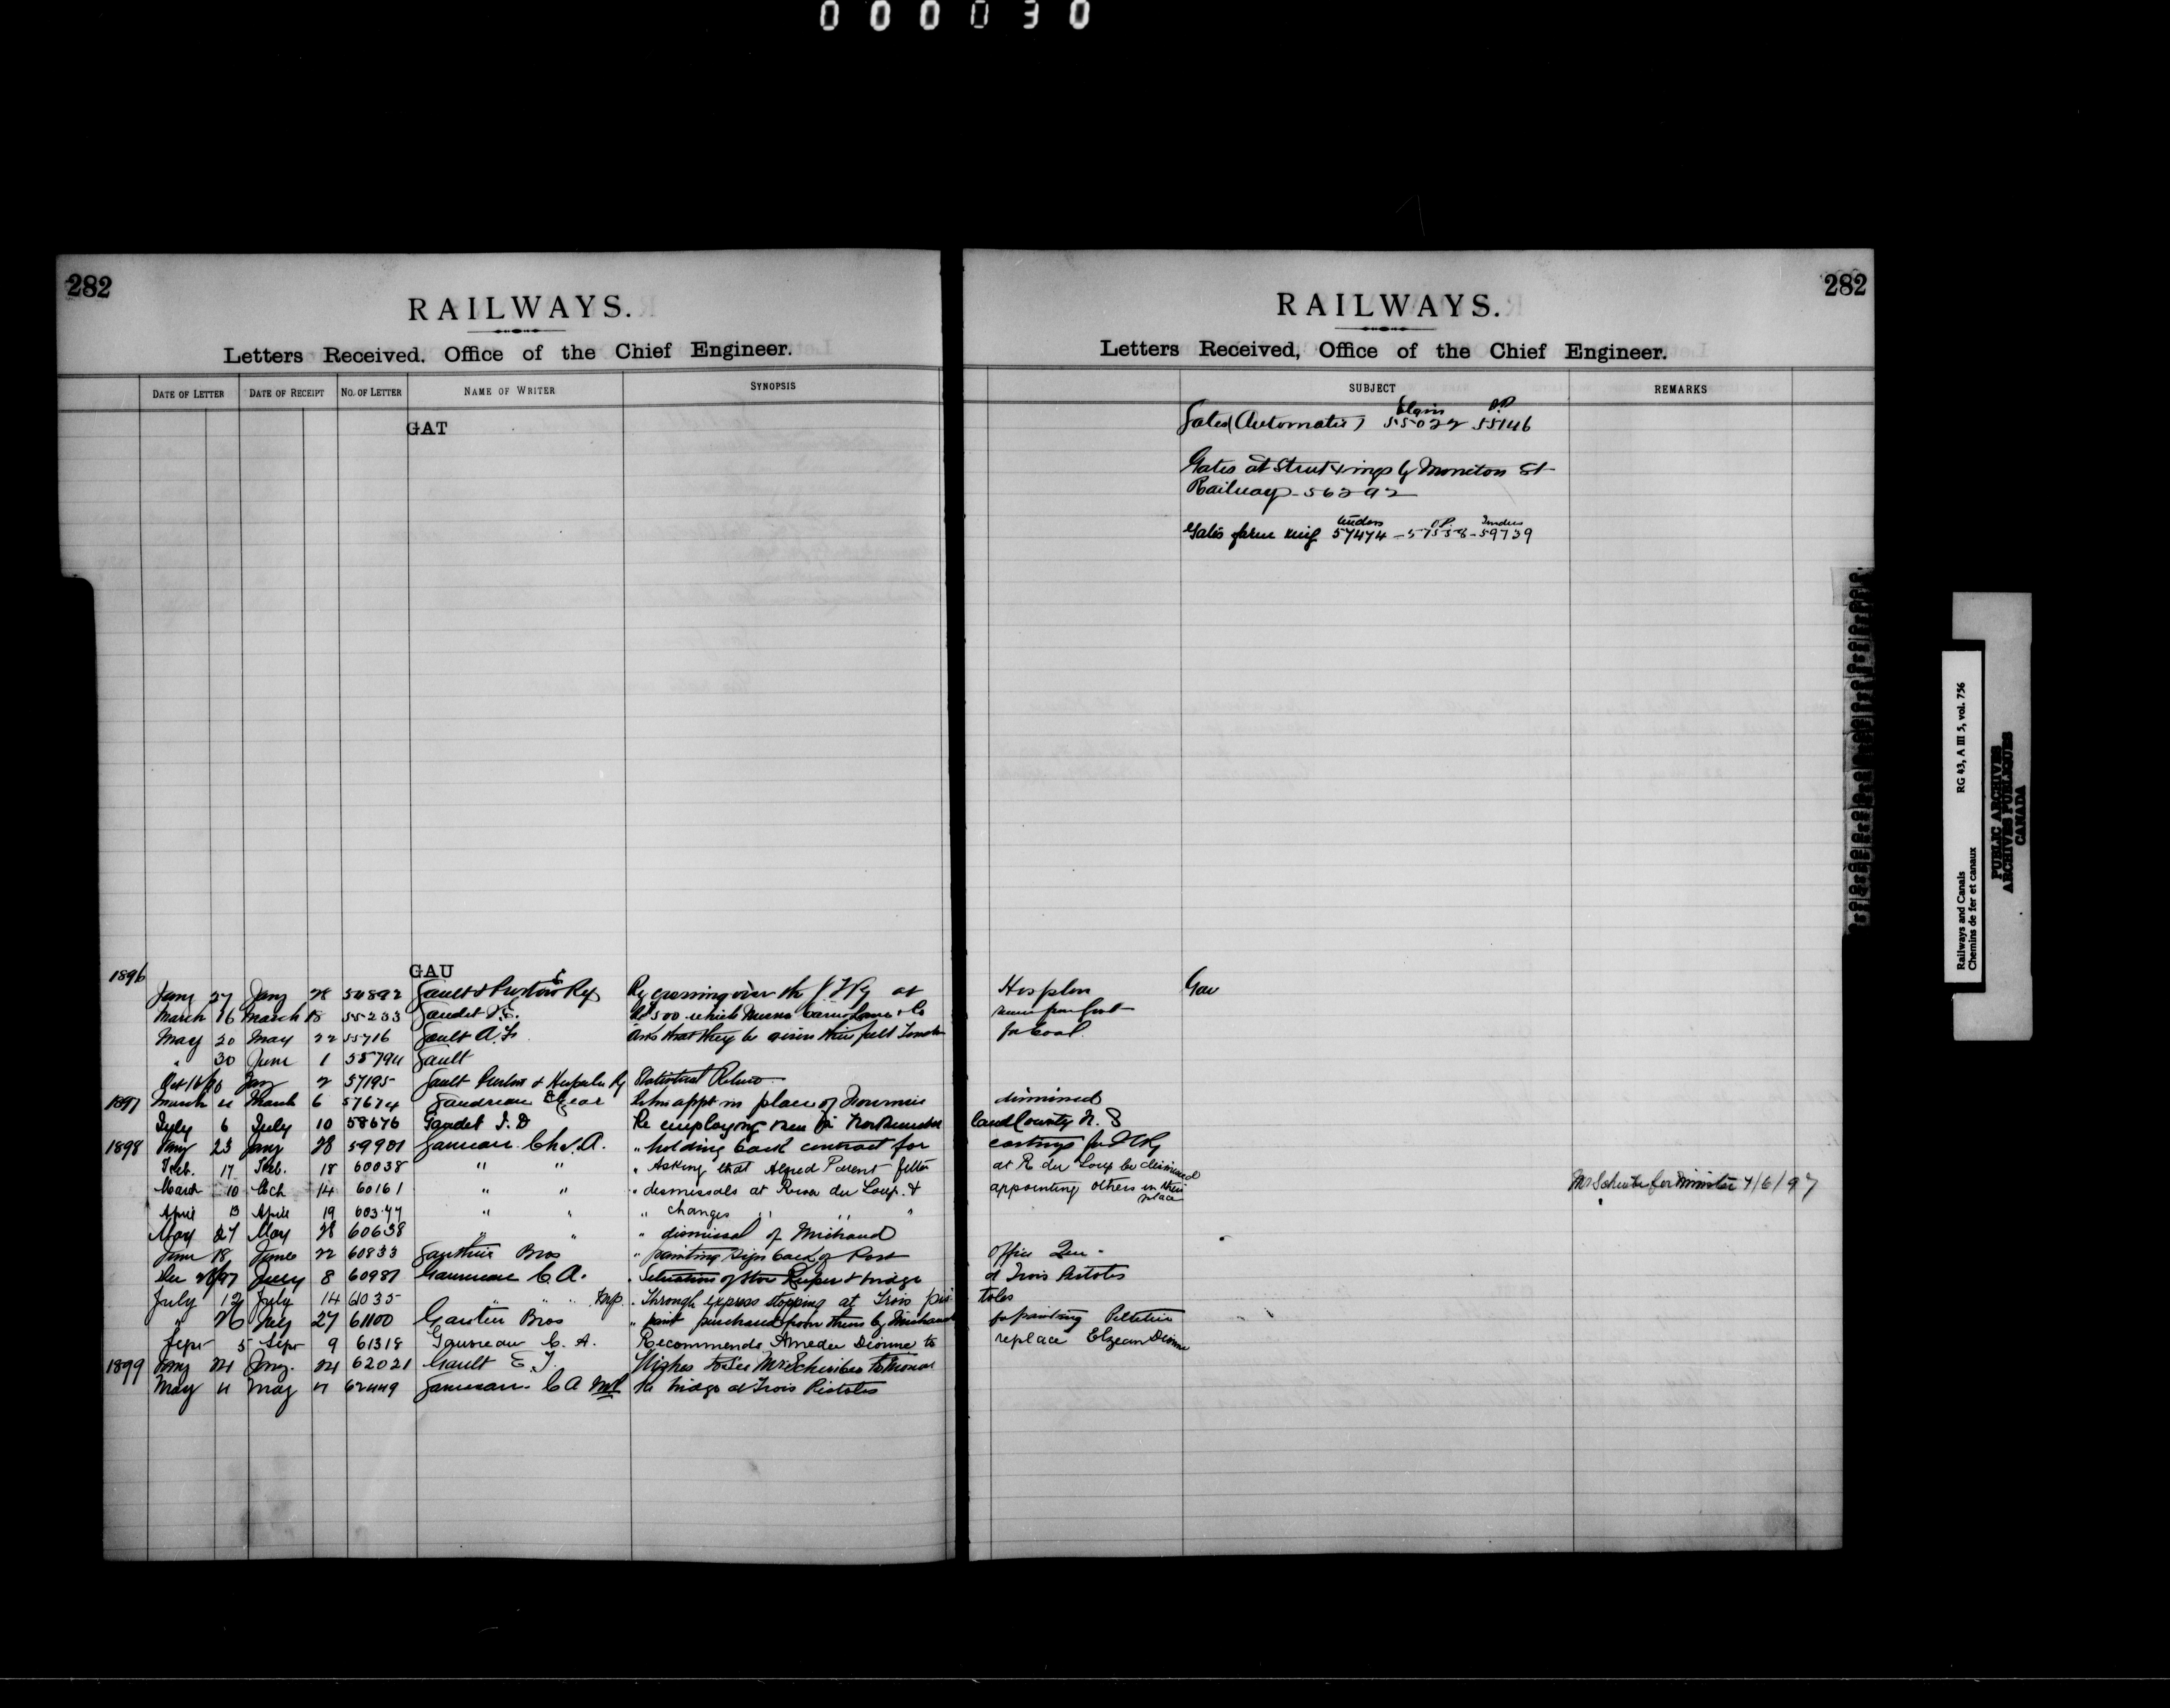 000030
282
RAILWAYS.
Letters Received. Office of the Chief Engineer.
DATE OF LETTER DATE OF RECEIPT NO. OF LETTER NAME OF WRITER SYNOPSIS
GAT
GAU
1896
Jany 27 Jany 28 54892 Gault & Preston Ry Re crossing over the G.T.Ry at
March 16 March 18 55233 Gaudet
May 20 May 22 55716 Gault A.F. Asks that they be given their full
" 30 June 1 55794 Gault
Jany 2 57195 Gault Preston & Hespeler Ry Statistical Return
1897 March 4 March 6 57674 Gaudreau Elzear appt in place of
July 6 July 10 58676 Gaudet F. D Re employing men in
1898 Jany 23 Jany 28 59901 Gauvreau Chs. A. " holding back contract for
Feb. 17 Feb. 18 60038 " " " Asking that Alfred Parent fitter
March 10 Mch 14 60161 " " " dismissals at River du Loup &
April 13 April 19 60347 " " " changes " " "
May 27 May 28 60638 " " " dismissal of Michaud
June 18 June 22 60833 Gauthier Bros " painting sign back of Post
Dec 28/97 July 8 60987 Gauvreau C. A. " Situation of Store Keeper & bridge
July 12 July 14 61035 " " " M.P. " Through express stopping at Trois pis
" 26 July 27 61100 Gautier Bros " paint purchased from them by Michaud
Sepr 5 Sepr 9 61318 Gauvreau C. A. Recommends Amedee Dionne to
1899 Jany 24 Jany. 24 62021 Gault E. J. Wishes to see Mr Schreiber
May 4 May 4 62449 Gauvreau C A M.P. Re bridge at Trois Pistoles
282
RAILWAYS.
Letters Received, Office of the Chief Engineer.
SUBJECT REMARKS
Elgin
Gates (Automatic) 55022 55146
Gates at Street Xings by Moncton St
Railway - 56292
Tenders Tenders
Gates farm 57474 - 57558 - 59739
Hespeler Gau
for Coal.
dismissed
land County N. S
castings for I C Ry
at R. du Loup be dismissed
appointing others in their place
Mr Schreiber for Minister 7/6/97
Office Que -
at Trois Pistoles
toles
for painting Pelletier
replace Elzear Dionne
Railways and Canals RG 43, A III 5, vol. 756
Chemins de fer et canaux
PUBLIC ARCHIVES
ARCHIVES PUBLIQUES
CANADA